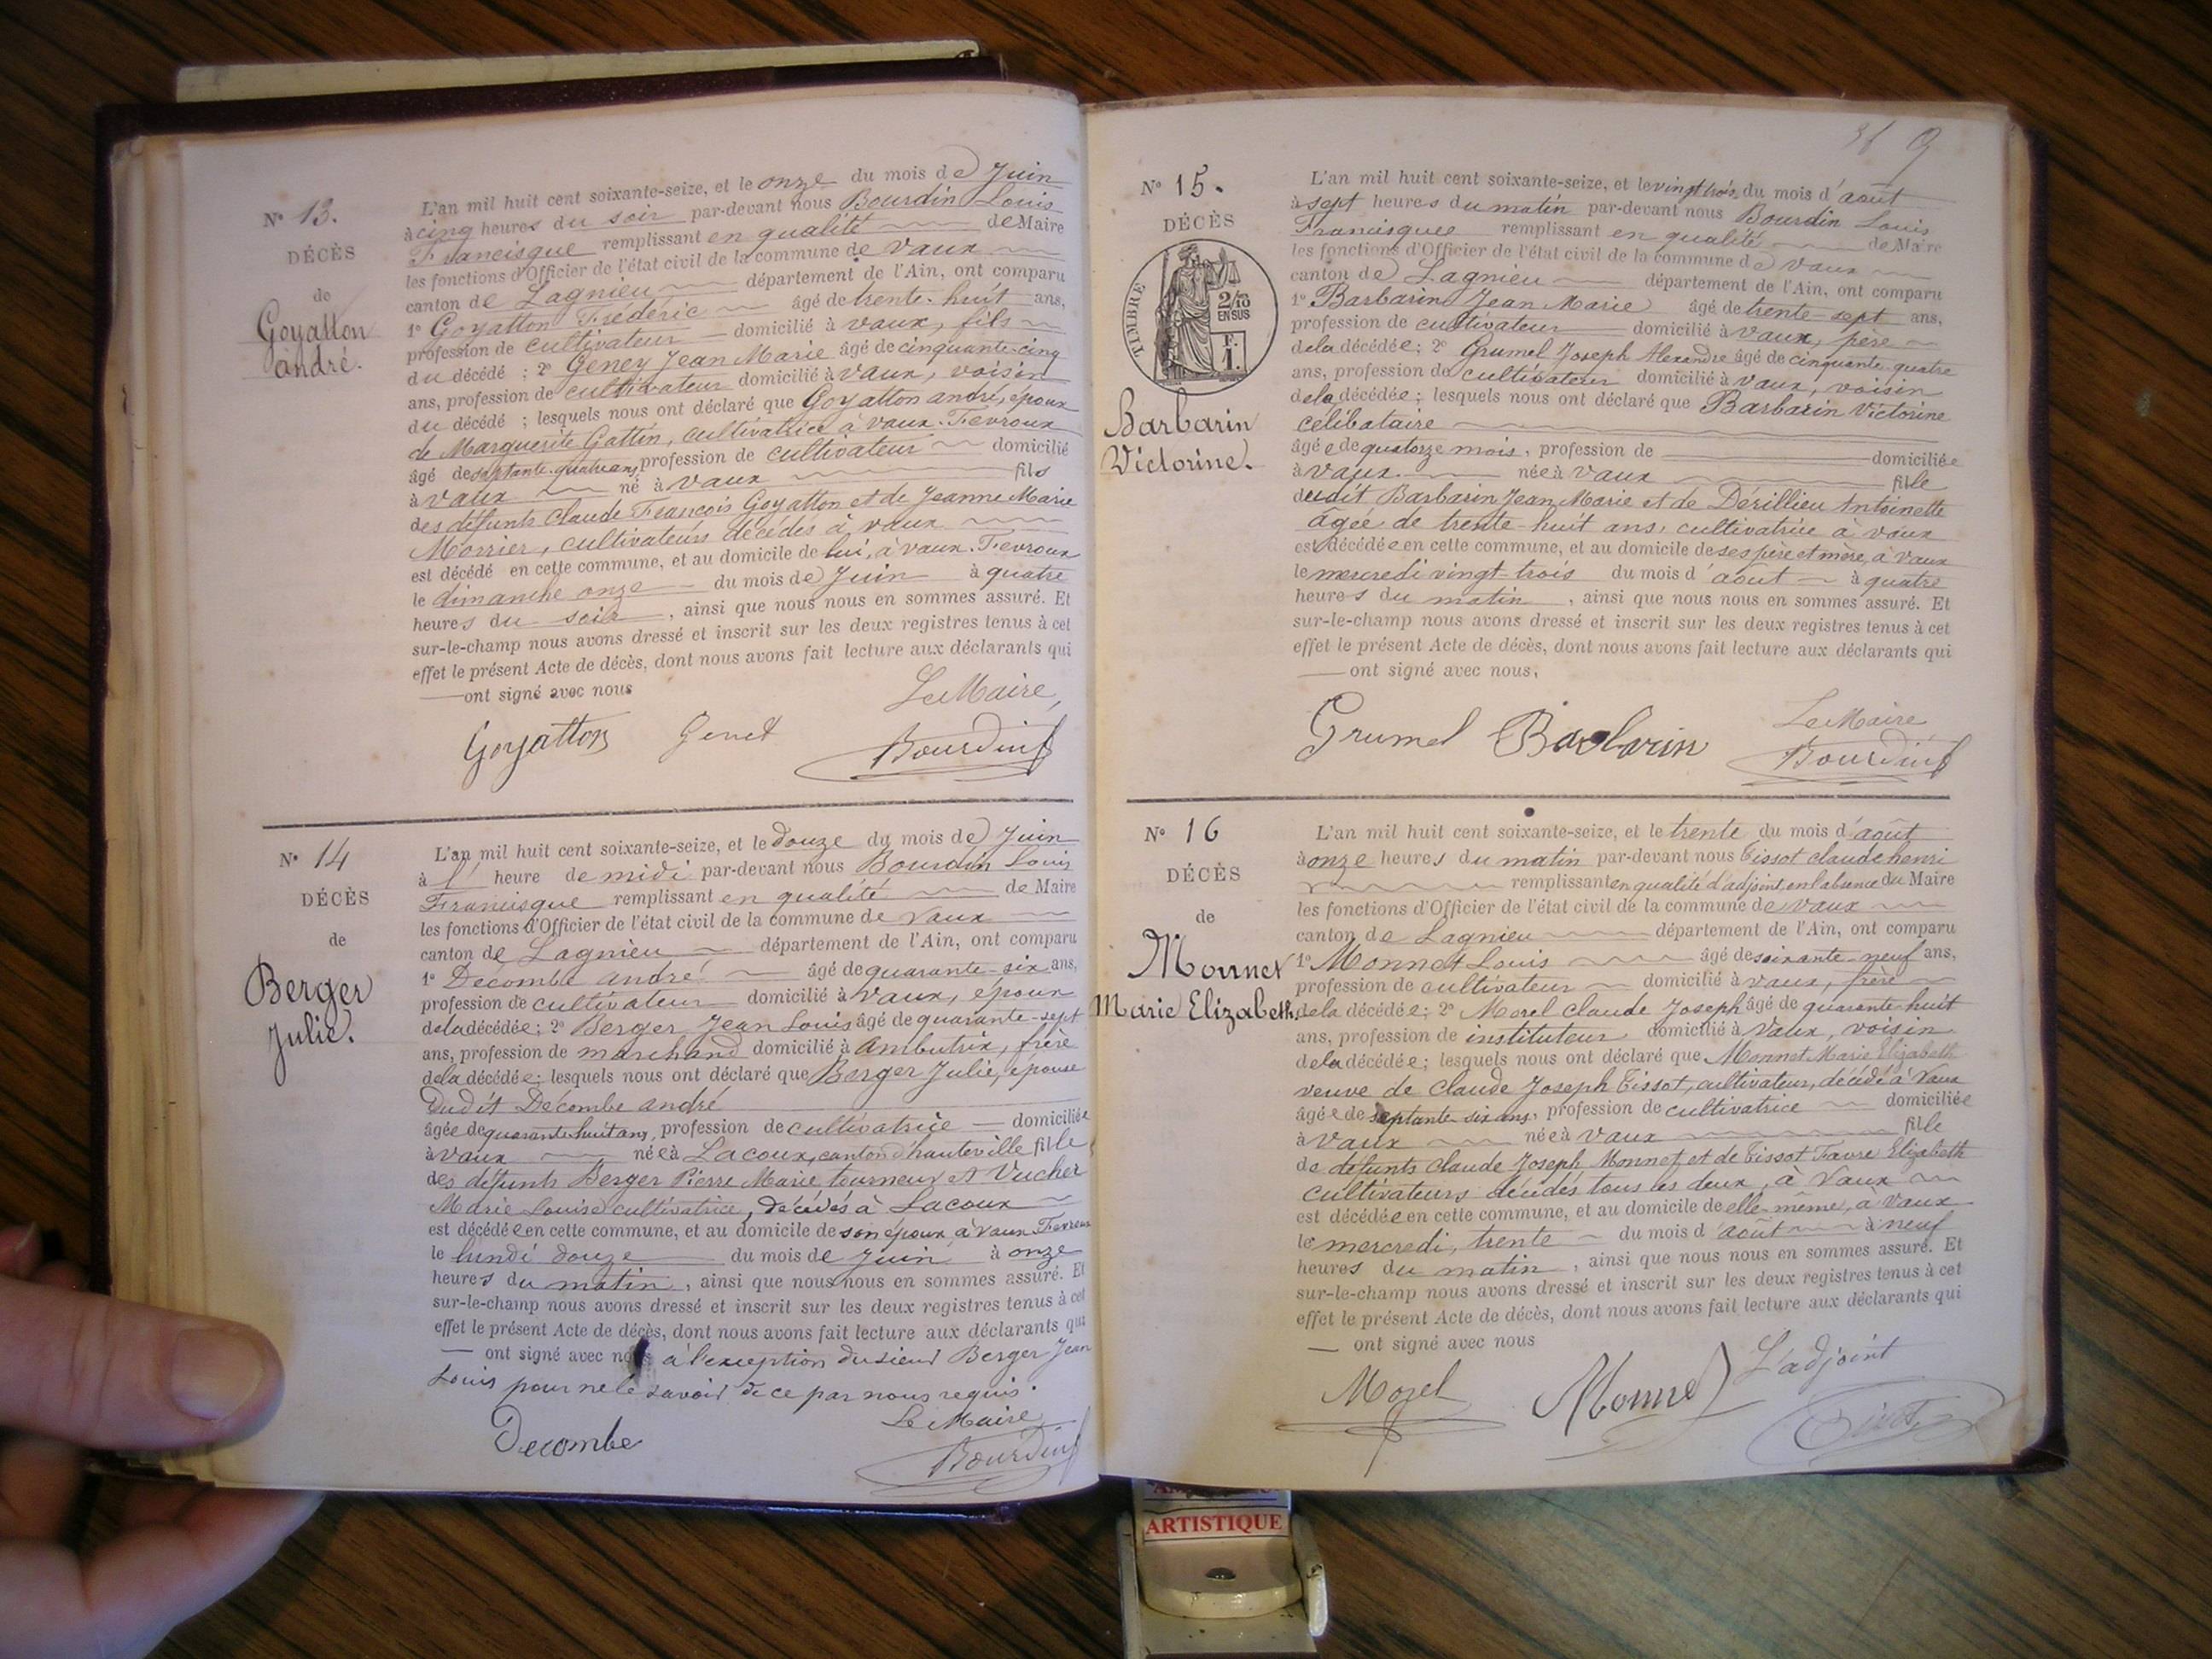 N° 13.
DÉCÈS
de
Goyatton
andré.
L'an mil huit cent soixante-seize, et le onze du mois de Juin
à cinq heures du soir par-devant nous Bourdin Louis
Francisque remplissant en qualité de Maire
les fonctions d'Officier de l'état civil de la commune de Vaux
canton de Lagnieu département de l'Ain, ont comparu
1° Goyatton Frédéric âgé de trente-huit ans,
profession de cultivateur domicilié à Vaux, fils
du décédé ; 2° Geney Jean Marie âgé de cinquante-cinq
ans, profession de cultivateur domicilié à Vaux, voisin
du décédé ; lesquels nous ont déclaré que Goyatton andré, époux
de Marguerite Gattin, cultivatrice à Vaux-Fevroux
âgé de septante-quatre ans, profession de cultivateur domicilié
à Vaux né à Vaux fils
des défunts Claude François Goyatton et de Jeanne Marie
Morrier, cultivateurs décédés à Vaux
est décédé en cette commune, et au domicile de lui, à Vaux-Fevroux
le dimanche onze du mois de Juin à quatre
heures du soir, ainsi que nous nous en sommes assuré. Et
sur-le-champ nous avons dressé et inscrit sur les deux registres tenus à cet
effet le présent Acte de décès, dont nous avons fait lecture aux déclarants qui
ont signé avec nous
Le Maire,
Goyatton Genet Bourdin
N° 14
DÉCÈS
de
Berger
Julie.
L'an mil huit cent soixante-seize, et le douze du mois de Juin
à l' heure de midi par-devant nous Bourdin Louis
Francisque remplissant en qualité de Maire
les fonctions d'Officier de l'état civil de la commune de Vaux
canton de Lagnieu département de l'Ain, ont comparu
1° Decombe andré âgé de quarante-six ans,
profession de cultivateur domicilié à Vaux, époux
de la décédée ; 2° Berger Jean Louis âgé de quarante-sept
ans, profession de marchand domicilié à Ambutrix, frère
de la décédée ; lesquels nous ont déclaré que Berger Julie, épouse
dudit Décombe andré
âgée de quarante huit ans, profession de cultivatrice domiciliée
à Vaux née à Lacoux, canton d'hauteville fille
des défunts Berger Pierre Marie tourneur et Vucher
Marie Louise cultivatrice, décédés à Lacoux
est décédée en cette commune, et au domicile de son époux, à Vaux Fevroux
le lundi douze du mois de Juin à onze
heures du matin, ainsi que nous nous en sommes assuré. Et
sur-le-champ nous avons dressé et inscrit sur les deux registres tenus à cet
effet le présent Acte de décès, dont nous avons fait lecture aux déclarants qui
ont signé avec nous à l'exception du sieur Berger Jean
Louis pour ne le savoir de ce par nous requis.
Le Maire
Decombe Bourdin
9
N° 15.
DÉCÈS
TIMBRE
2/10
EN SUS
F.
1.
Barbarin
Victorine.
L'an mil huit cent soixante-seize, et le vingt trois du mois d'août
à sept heures du matin par-devant nous Bourdin Louis
Francisque remplissant en qualité de Maire
les fonctions d'Officier de l'état civil de la commune de Vaux
canton de Lagnieu département de l'Ain, ont comparu
1° Barbarin Jean Marie âgé de trente-sept ans,
profession de cultivateur domicilié à Vaux, père
de la décédée ; 2° Grumel Joseph Alexandre âgé de cinquante-quatre
ans, profession de cultivateur domicilié à Vaux, voisin
de la décédée ; lesquels nous ont déclaré que Barbarin Victorine
célibataire
âgée de quatorze mois, profession de domiciliée
à Vaux née à Vaux fille
dudit Barbarin Jean Marie et de Dérillieu Antoinette
âgée de trente-huit ans, cultivatrice à Vaux
est décédée en cette commune, et au domicile de ses père et mère, à Vaux
le mercredi vingt-trois du mois d'août à quatre
heures du matin, ainsi que nous nous en sommes assuré. Et
sur-le-champ nous avons dressé et inscrit sur les deux registres tenus à cet
effet le présent Acte de décès, dont nous avons fait lecture aux déclarants qui
ont signé avec nous,
Le Maire
Grumel Barbarin Bourdin
N° 16
DÉCÈS
de
Monnet
Marie Elizabeth.
L'an mil huit cent soixante-seize, et le trente du mois d'août
à onze heures du matin par-devant nous Tissot claude henri
remplissant en qualité d'adjoint en l'absence du Maire
les fonctions d'Officier de l'état civil de la commune de Vaux
canton de Lagnieu département de l'Ain, ont comparu
1° Monnet Louis âgé de soixante-neuf ans,
profession de cultivateur domicilié à Vaux, frère
de la décédée ; 2° Morel Claude Joseph âgé de quarante huit
ans, profession de instituteur domicilié à Vaux, voisin
de la décédée ; lesquels nous ont déclaré que Monnet Marie Elizabeth
veuve de Claude Joseph Tissot, cultivateur, décédé à Vaux
âgée de septante-six ans, profession de cultivatrice domiciliée
à Vaux née à Vaux fille
de défunts Claude Joseph Monnet et de Tissot Favre Elizabeth
cultivateurs décédés tous les deux, à Vaux
est décédée en cette commune, et au domicile de elle-même, à Vaux
le mercredi, trente du mois d'août à neuf
heures du matin, ainsi que nous nous en sommes assuré. Et
sur-le-champ nous avons dressé et inscrit sur les deux registres tenus à cet
effet le présent Acte de décès, dont nous avons fait lecture aux déclarants qui
ont signé avec nous
L'adjoint
Morel Monnet Tissot
ARTISTIQUE